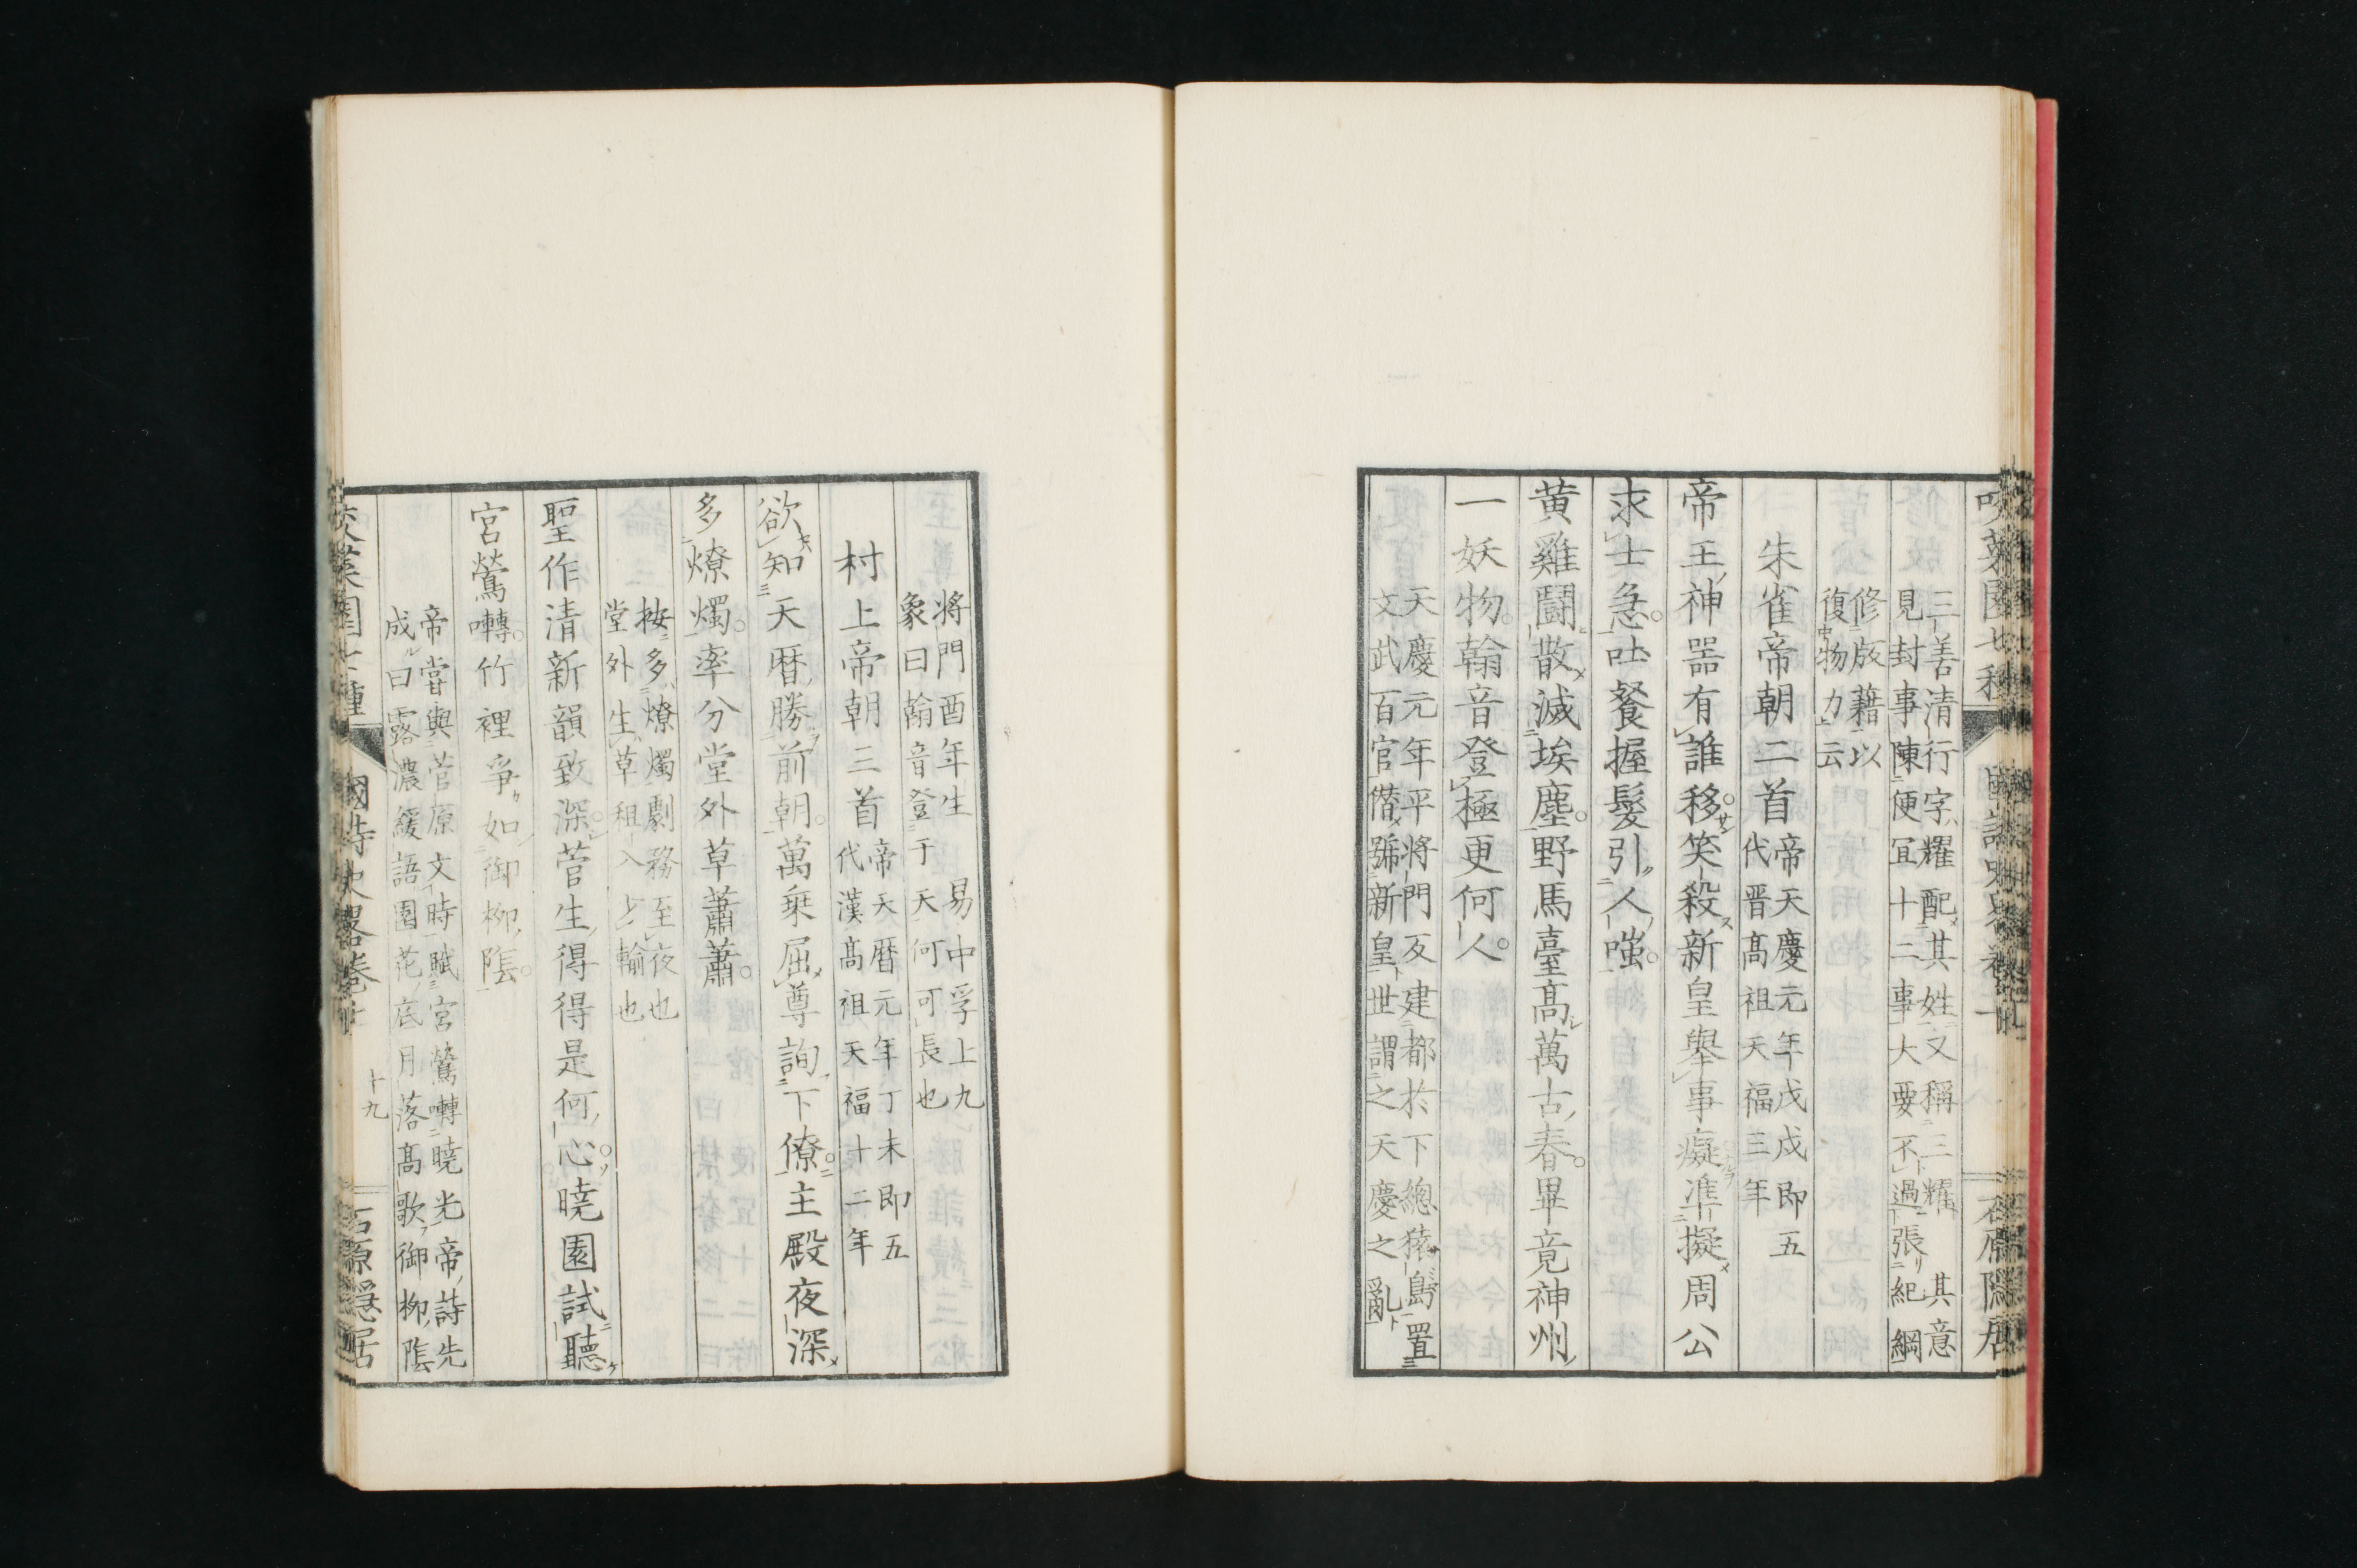 三善清行字耀配其姓又稱三耀其意
見封事陳便冝十二事大要不過張紀綱
修版藉以
復物力云
朱雀帝朝二首
帝天慶元年戊戌即五
代晋髙祖天福三年
帝王神器有誰移笑殺新皇舉事癡準擬周公
求士急吐餐握髮引人嗤
黄雞鬪散滅埃塵野馬臺髙萬古春畢竟神州
一妖物翰音登極更何人
天慶元年平將門反建都於下總猿島置
文武百官僣號新皇世謂之天慶之亂
將門酉年生易中孚上九
象曰翰音登于天何可長也
村上帝朝三首
帝天暦元年丁未即五
代漢髙祖天福十二年
欲知天暦勝前朝萬乗屈尊詢下僚主殿夜深
多燎燭率分堂外草蕭蕭
按多燎燭劇務至夜也
堂外生草租入少輸也
聖作清新韻致深菅生得得是何心曉園試聽
宮鶯囀竹裡爭如御柳陰
帝嘗與菅原文時賦宮鶯囀曉光帝詩先
成曰露濃緩語園花底月落髙歌御柳陰
十九